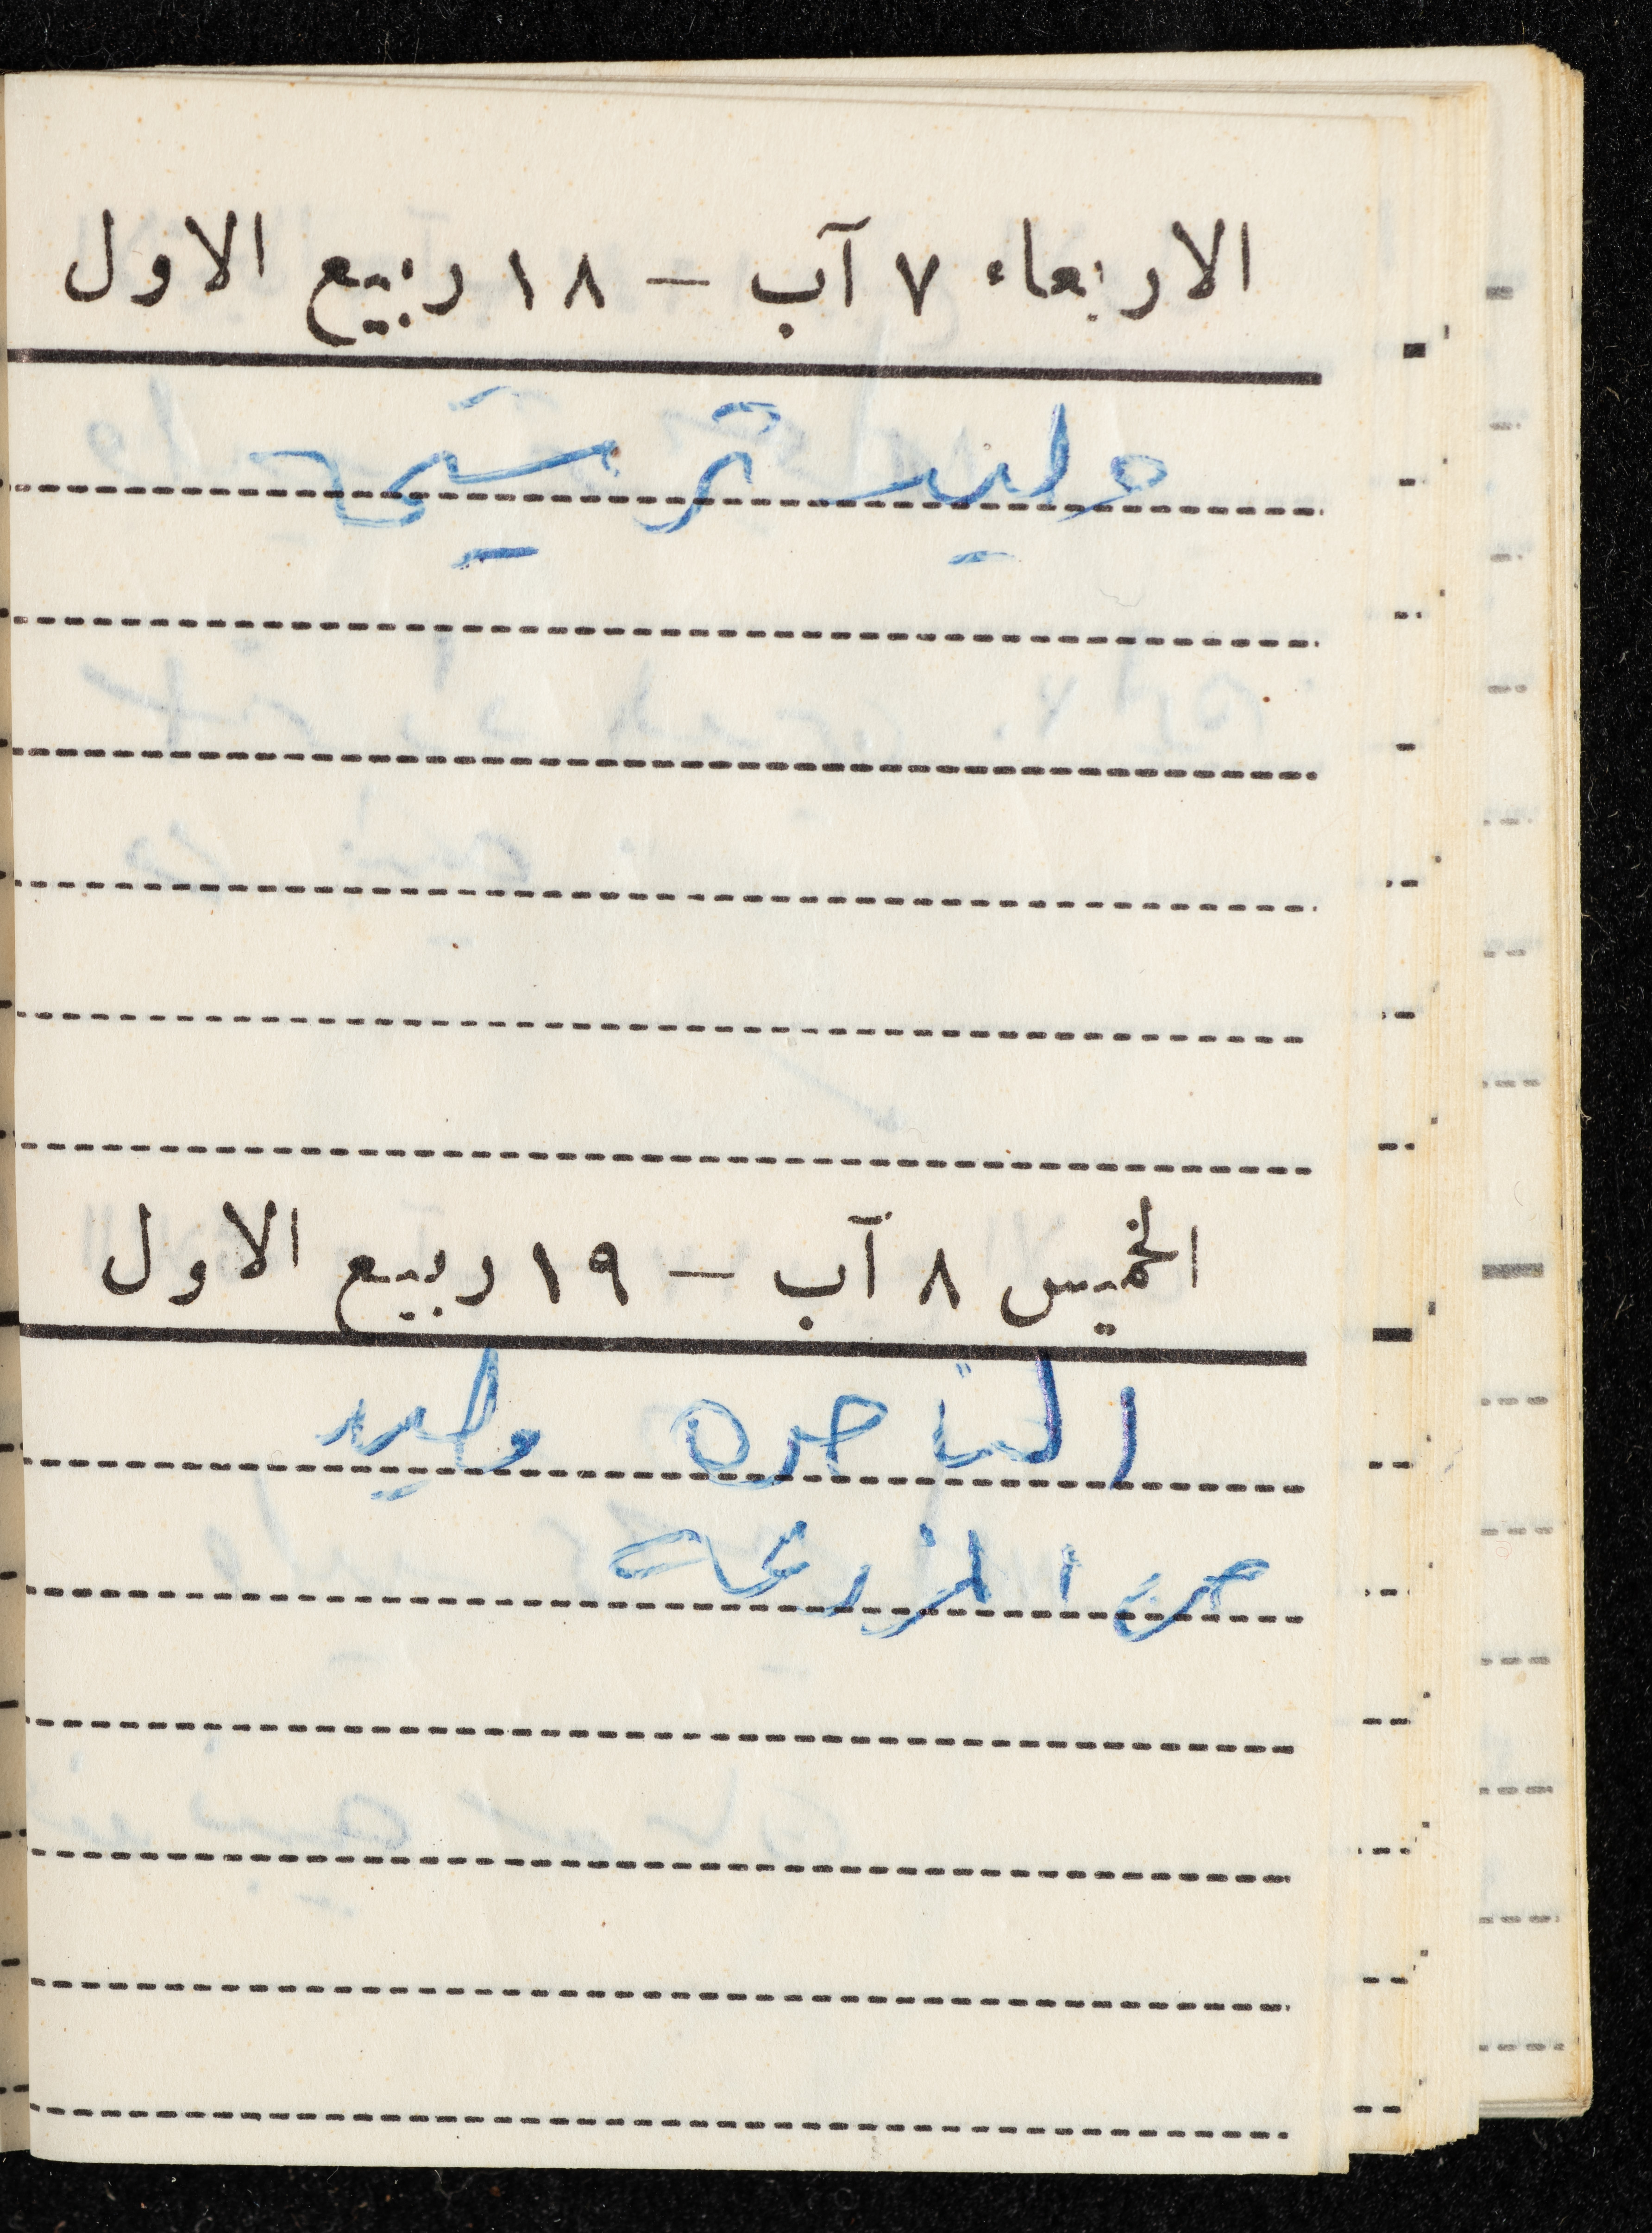 الاربعاء ٧ آب - ١٨ ربيع الاول
وليد ترشي
الخميس ٨ آب - ١٩ ربيع الاول
الناصره وليد
من المزرعه